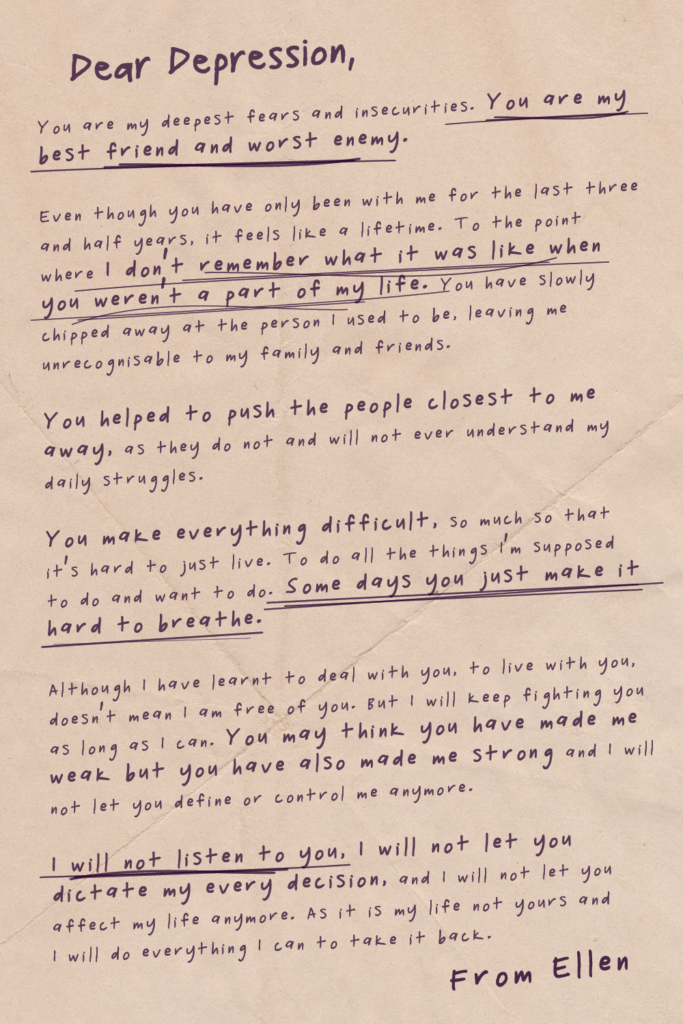 Dear Depression,
You are my deepest fears and insecurities. You are my
best friend and worst enemy.
Even though you have only been with me for the last three
and half years, it feels like a lifetime. To the point
where I don't remember what it was like when
you weren't a part of my life. You have slowly
chipped away at the person I used to be, leaving me
unrecognisable to my family and friends.
You helped to push the people closest to me
away, as they do not and will not ever understand my
daily struggles.
You make everything difficult, so much so that
it's hard to just live. To do all the things I'm supposed
to do and want to do. Some days you just make it
hard to breathe.
Although I have learnt to deal with you, to live with you,
doesn't mean I am free of you. But I will keep fighting you
as long as I can. You may think you have made me
weak but you have also made me strong and I will
not let you define or control me anymore.
I will not listen to you, I will not let you
dictate my every decision, and I will not let you
affect my life anymore. As it is my life not yours and
I will do everything I can to take it back.
From Ellen